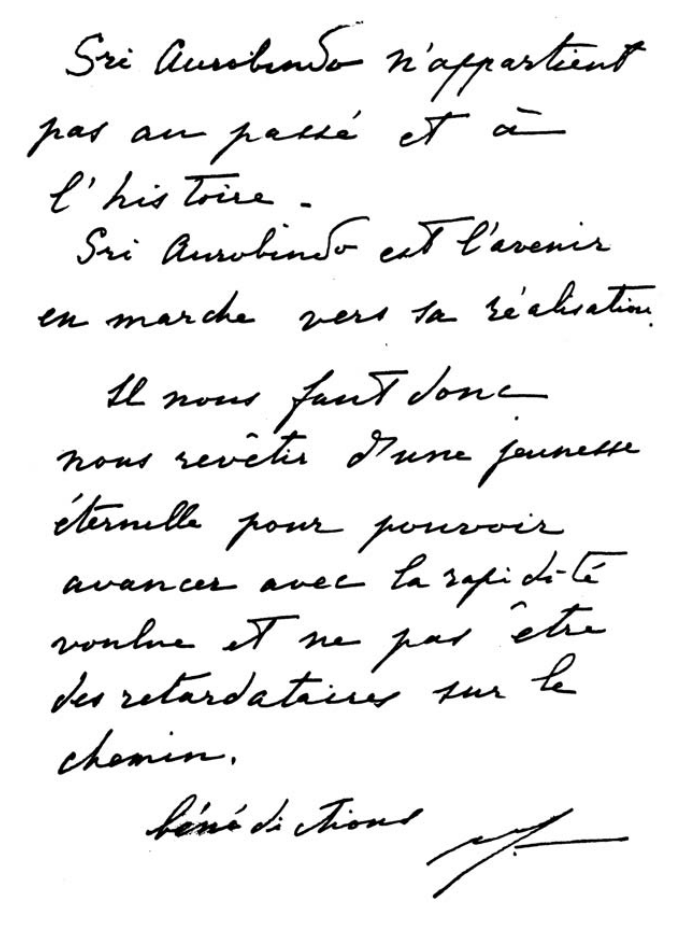 Sri Aurobindo n'appartient
pas au passé et à
l'histoire.
Sri Aurobindo est l'avenir
en marche vers sa réalisation.
Il nous faut donc
nous revêtir d'une jeunesse
éternelle pour pouvoir
avancer avec la rapidité
voulue et ne pas être
des retardataires sur le
chemin.
bénédictions